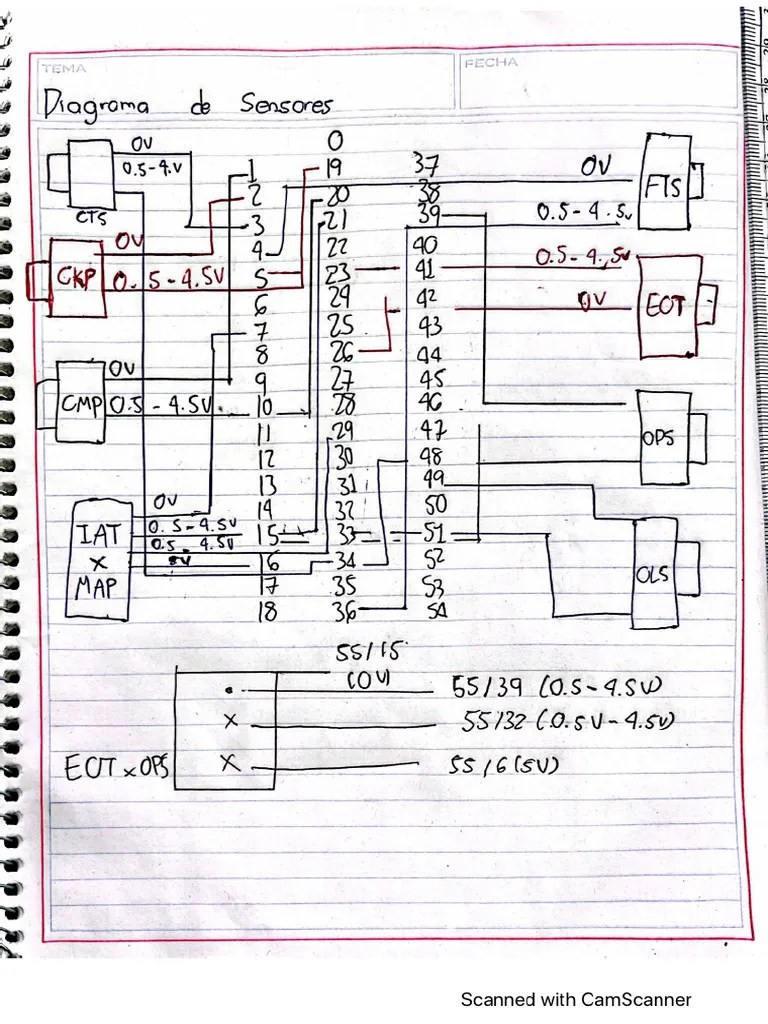 TEMA
FECHA
Diagrama de Sensores
0V
0.5-4.V
CTS
0V
CKP
0.5-4.5V
0V
CMP
0.5-4.5V
0V
0.5-4.5V
0.5-4.5V
5V
IAT
x
MAP
1
2
3
4
5
6
7
8
9
10
11
12
13
14
15
16
17
18
0
19
20
21
22
23
24
25
26
27
28
29
30
31
32
33
34
35
36
37
38
39
40
41
42
43
44
45
46
47
48
49
50
51
52
53
54
0V
0.5-4.5v
FTS
0.5-4.5v
0V
EOT
OPS
OLS
55/15
(0V)
55/39 (0.5-4.5V)
55/32 (0.5V-4.5V)
55/6 (5V)
EOT x OPS
x
x
Scanned with CamScanner